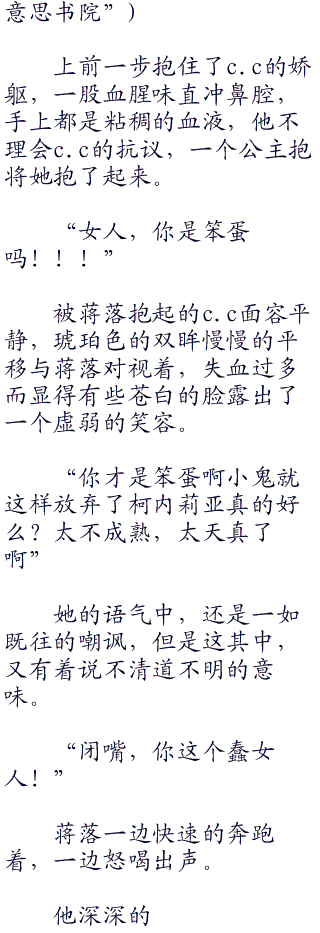 意思书院”)
上前一步抱住了c.c的娇
躯，一股血腥味直冲鼻腔，
手上都是粘稠的血液，他不
理会c.c的抗议，一个公主抱
将她抱了起来。
“女人，你是笨蛋
吗！！！”
被蒋落抱起的c.c面容平
静，琥珀色的双眸慢慢的平
移与蒋落对视着，失血过多
而显得有些苍白的脸露出了
一个虚弱的笑容。
“你才是笨蛋啊小鬼就
这样放弃了柯内莉亚真的好
么？太不成熟，太天真了
啊”
她的语气中，还是一如
既往的嘲讽，但是这其中，
又有着说不清道不明的意
味。
“闭嘴，你这个蠢女
人！”
蒋落一边快速的奔跑
着，一边怒喝出声。
他深深的